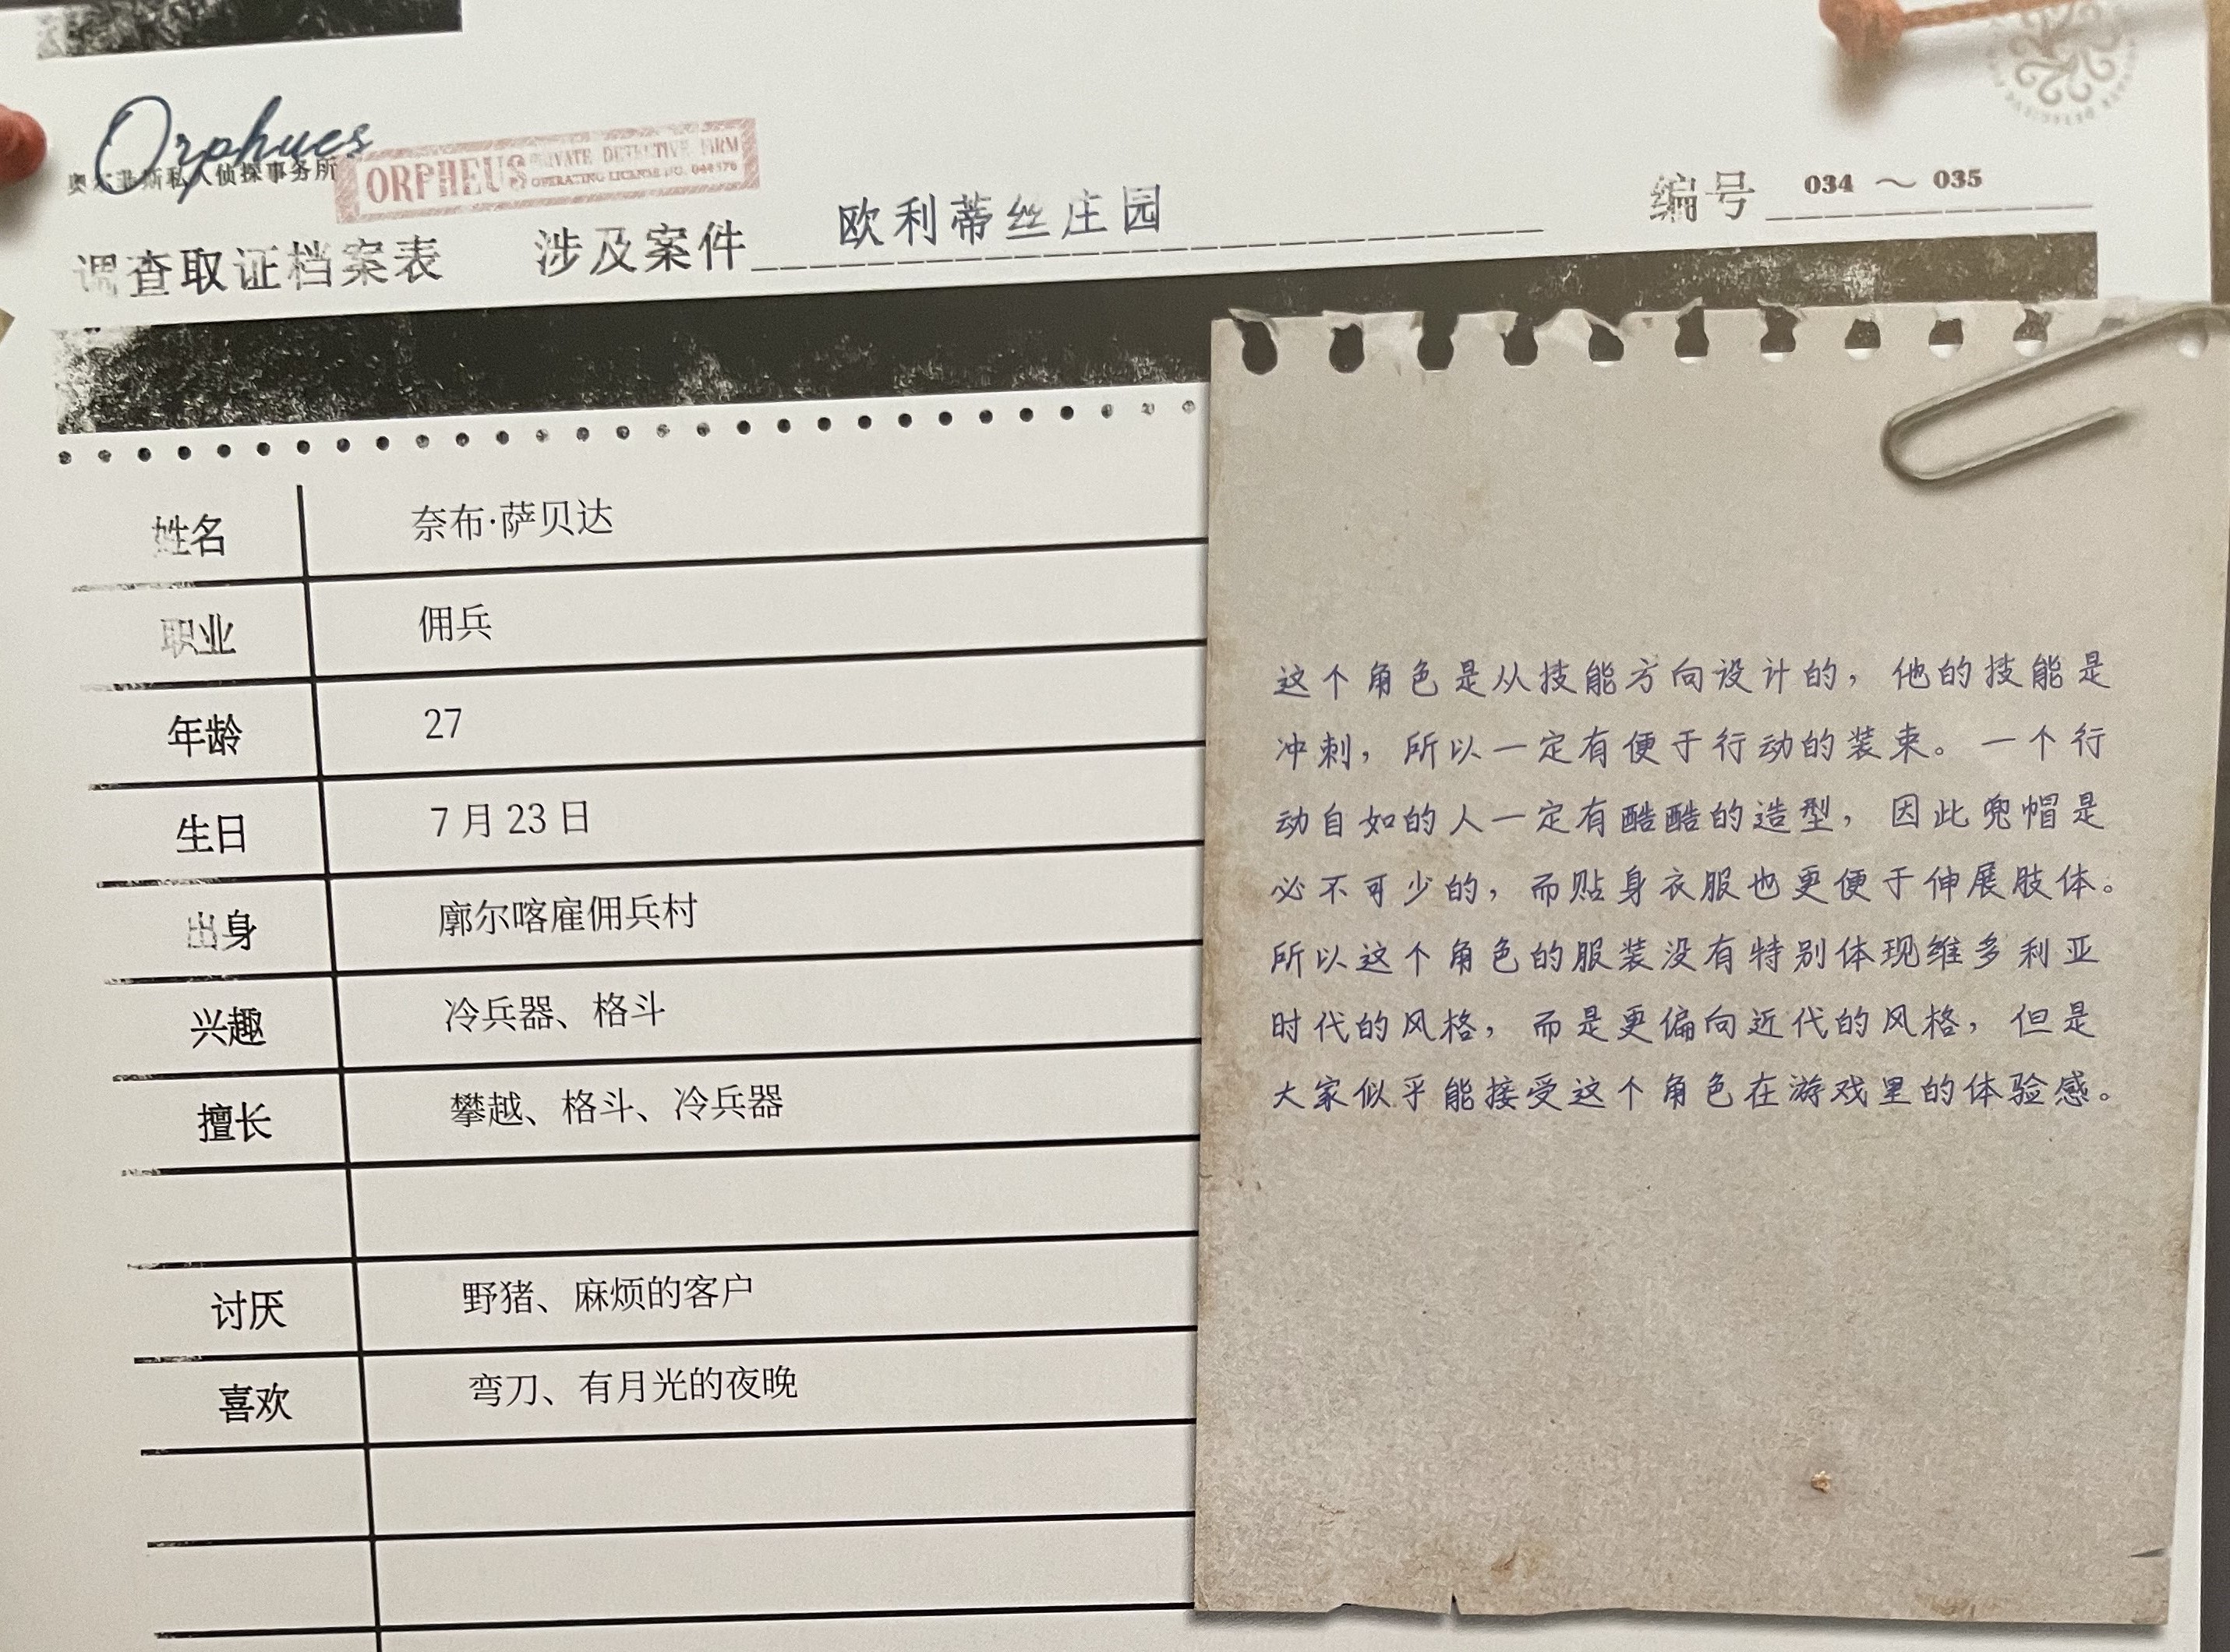 Orphues
奥尔菲斯私人侦探事务所
ORPHEUS PRIVATE DETECTIVE FIRM
OPERATING LICENSE NO.
调查取证档案表 涉及案件 欧利蒂丝庄园
编号 034 ～ 035
姓名 奈布·萨贝达
职业 佣兵
年龄 27
生日 7 月 23 日
出身 廓尔喀雇佣兵村
兴趣 冷兵器、格斗
擅长 攀越、格斗、冷兵器
讨厌 野猪、麻烦的客户
喜欢 弯刀、有月光的夜晚
这个角色是从技能方向设计的，他的技能是
冲刺，所以一定有便于行动的装束。一个行
动自如的人一定有酷酷的造型，因此兜帽是
必不可少的，而贴身衣服也更便于伸展肢体。
所以这个角色的服装没有特别体现维多利亚
时代的风格，而是更偏向近代的风格，但是
大家似乎能接受这个角色在游戏里的体验感。